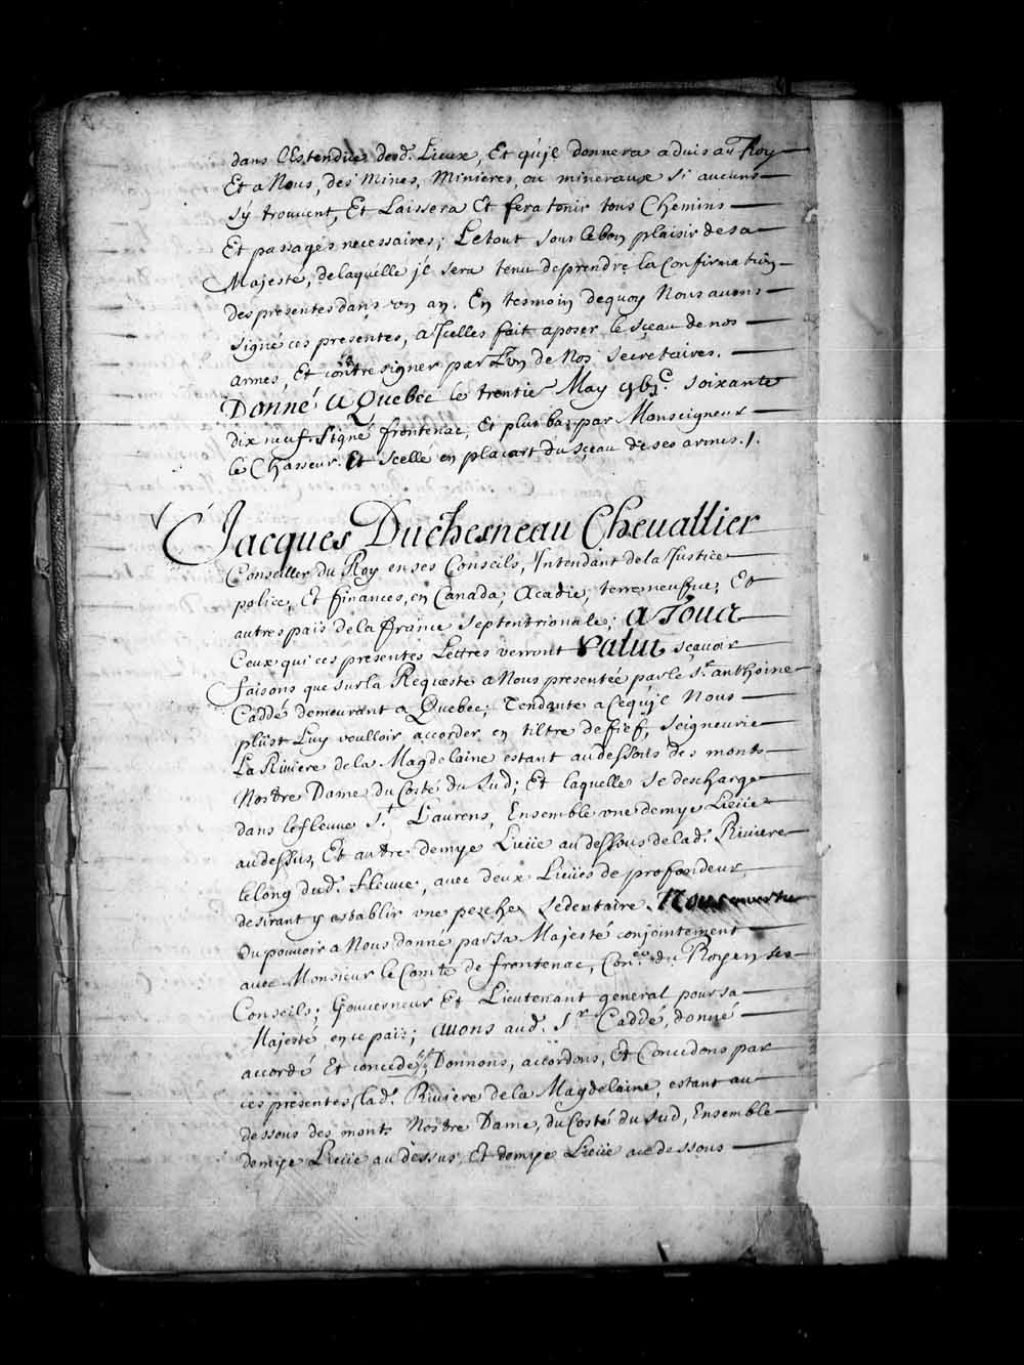 dans l'Estendüe desd. Lieux, Et qu'jl donnera aduis au Roy
Et a Nous, des Mines, Minieres, ou mineraux si aucuns
s'y trouuent, Et Laissera Et fera tenir tous Chemins
Et passages necessaires; Le tout sous le bon plaisir de sa
Majesté, de laquelle jl sera tenu de prendre la Confirmation
des presentes dans vn an. En tesmoin dequoy Nous auons
signé ces presentes, a Jcelles fait aposer le sçeau de nos
armes, Et contresigner par L'un de Nos secretaires.
Donné a Quebec le trentie May gbjc. soixante
dix neuf. Signé frontenac, Et plus bas par Monseigneur
le Chasseur. Et scellé en placart du sçeau de ses armes./.
Jacques Duchesneau Cheuallier
Conseiller du Roy en ses Conseils, Intendant de la Justice
police, Et finances, en Canada, Acadie, terreneufue, Et
autres païs de la france septentrionale; A Tous
Ceux qui ces presentes Lettres verront Salut sçauoir
faisons que sur la Requeste a Nous presentée par le Sr. anthoine
Caddé demeurant a Quebec; Tendante a ce qu'jl Nous
plûst Luy voulloir accorder en tiltre de fief, seigneurie
La Riuiere de la Magdelaine estant au dessous des monts
Nostre Dame du Costé du Sud; Et laquelle se descharge
dans le fleuue St. Laurens, Ensemble vne demye Lieüe
au dessus, Et autre demye Lieüe au dessous de lad. Riuiere
le long dud. fleuue, auec deux Lieües de profondeur,
desirant y establir vne pesche sedentaire. Nous en vertu
du pouuoir a Nous donné par sa Majesté conjointement
auec Monsieur le Comte de frontenac, Coner. du Roy en ses
Conseils; Gouuerneur Et Lieutenant general pour sa
Majesté en ce païs; Auons aud. Sr. Caddé, donné
accordé Et concedé, Donnons, accordons, Et Concedons par
ces presentes lad. Riuiere de la Magdelaine, estant au
dessous des monts Nostre Dame, du Costé du Sud, Ensemble
demye Lieüe au dessus, Et demye Lieüe au dessous